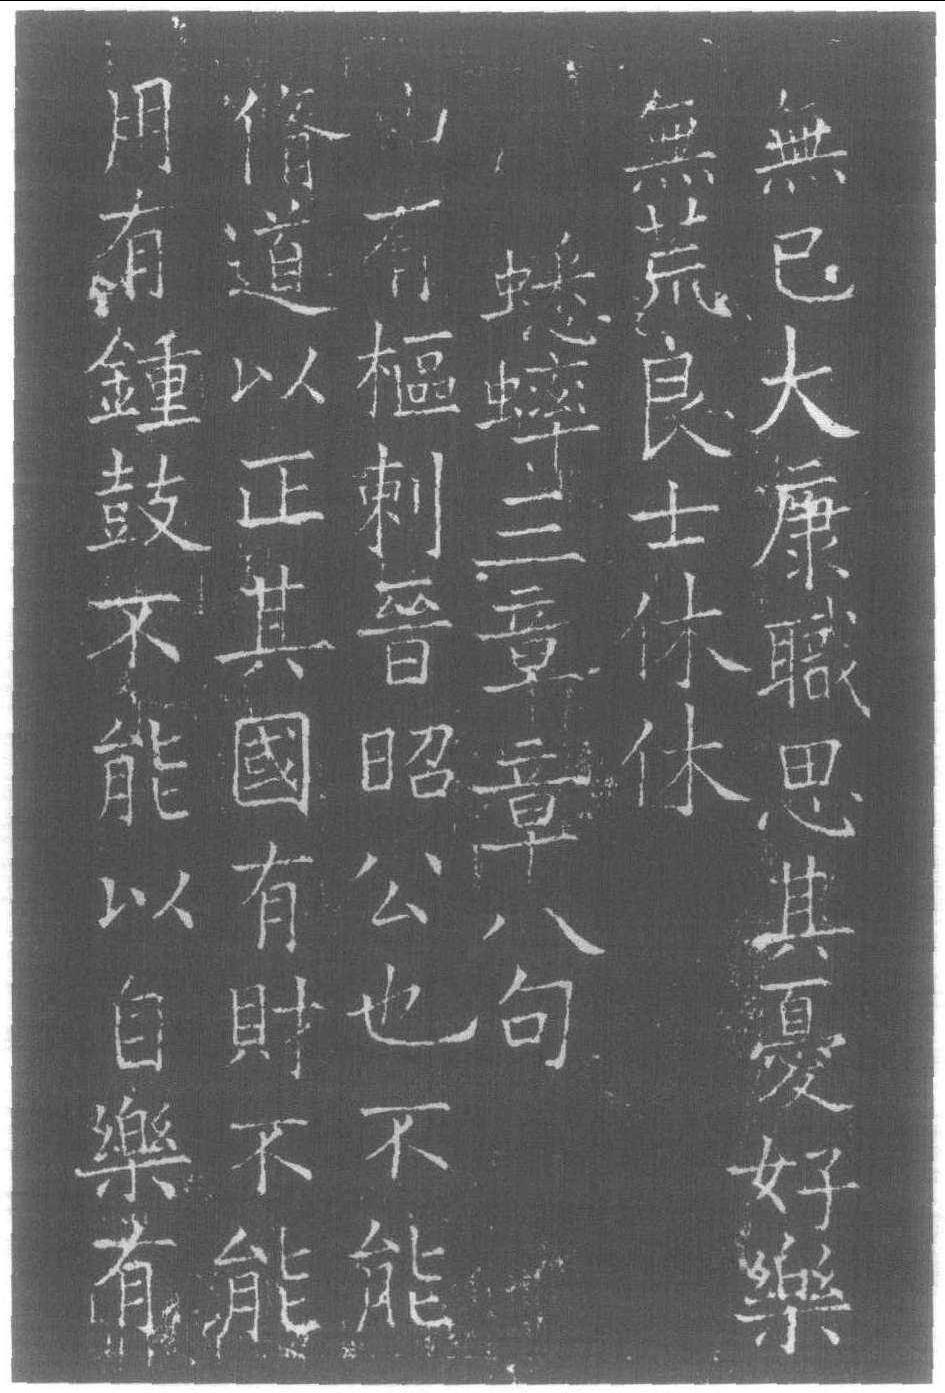 無已大康職思其憂好樂
無荒良士休休
蟋蟀三章章八句
山有樞刺晉昭公也不能
脩道以正其國有財不能
用有鍾鼓不能以自樂有